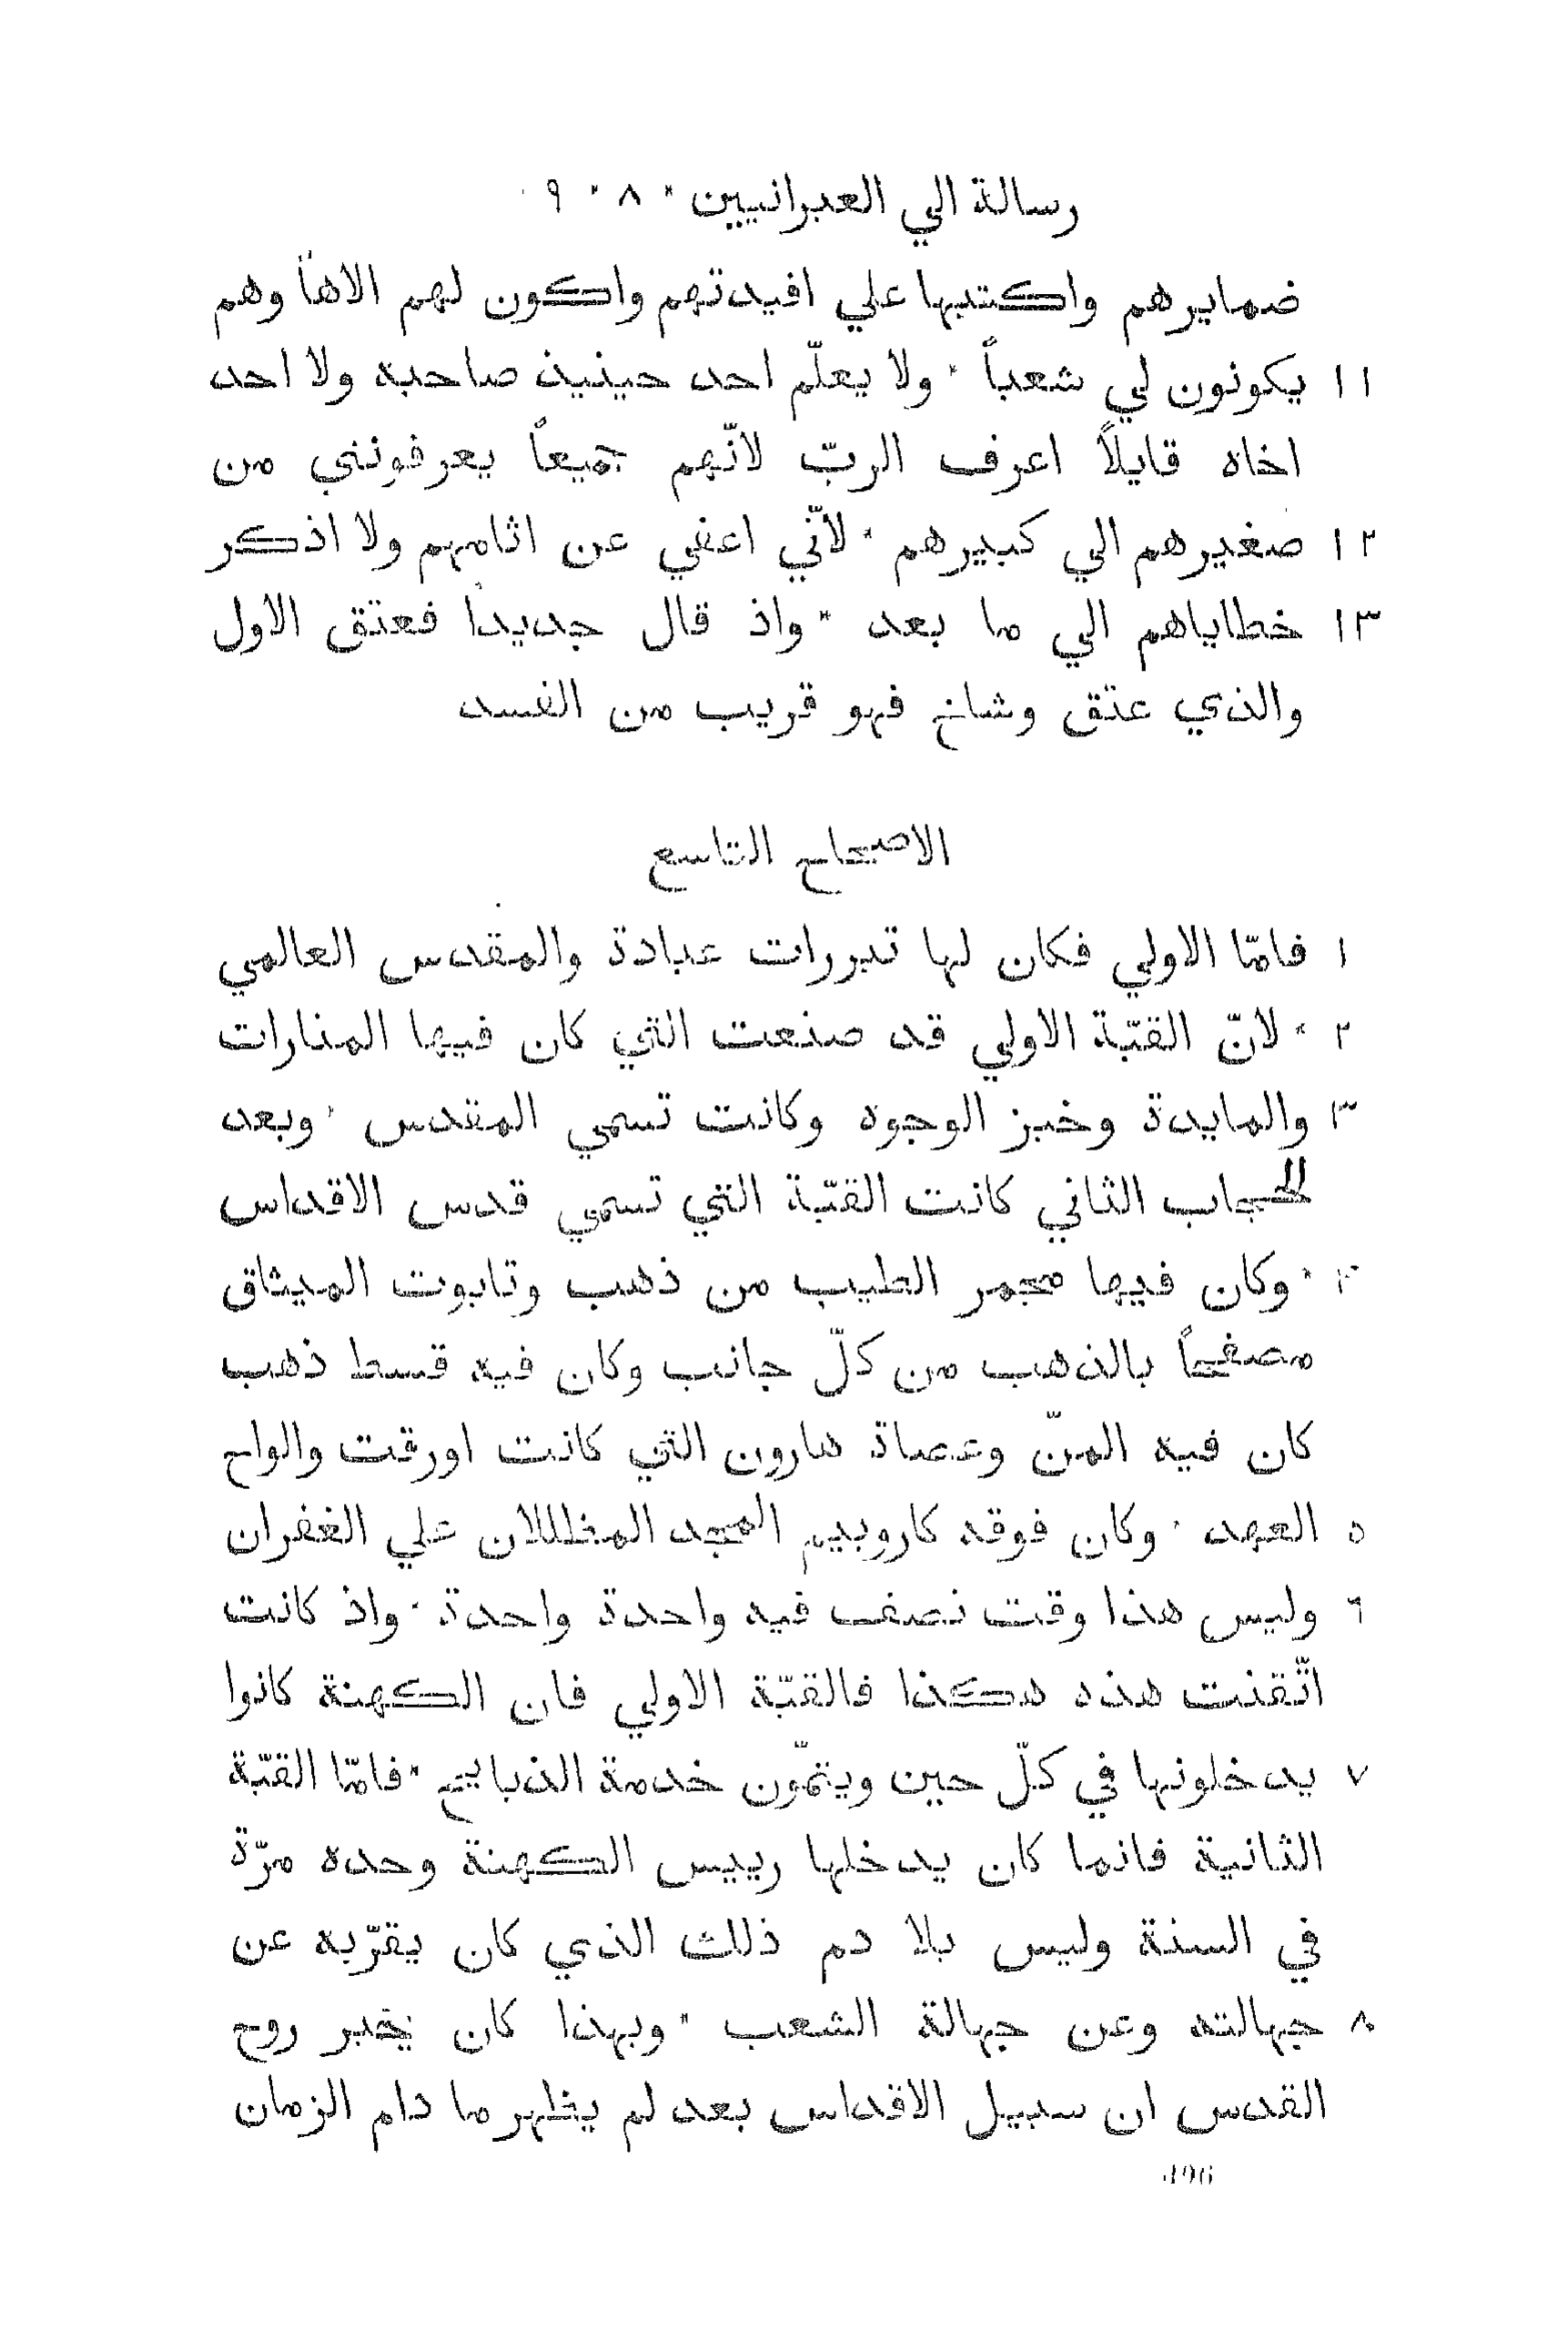 رسالة الي العبرانيين * ٨ * ٩
ضمايرهم واكتبها علي افيدتهم واكون لهم الاهاً وهم
١١ يكونون لي شعباً * ولا يعلّم احد حينيذ صاحبه ولا احد
اخاه قايلاً اعرف الربّ لانّهم جميعاً يعرفونني من
١٢ صغيرهم الي كبيرهم * لانّي اعفي عن اثامهم ولا اذكر
١٣ خطاياهم الي ما بعد * واذ قال جديداً فعتق الاول
والذي عتق وشاخ فهو قريب من الفسد
الاصحاح التاسع
١ فامّا الاولي فكان لها تبررات عبادة والمقدس العالمي
٢ * لانّ القبّة الاولي قد صنعت التي كان فيها المنارات
٣ والمايدة وخبز الوجوه وكانت تسمي المقدس * وبعد
الحجاب الثاني كانت القبّة التي تسمي قدس الاقداس
٤ * وكان فيها مجمر الطيب من ذهب وتابوت الميثاق
مصفحاً بالذهب من كلّ جانب وكان فيه قسط ذهب
كان فيه المنّ وعصاة هارون التي كانت اورقت والواح
٥ العهد * وكان فوقه كاروبيم المجد المظللان علي الغفران
٦ وليس هذا وقت نصف فيه واحدة واحدة * واذ كانت
اتّقنت هذه هكذا فالقبّة الاولي فان الكهنة كانوا
٧ يدخلونها في كلّ حين ويتمّون خدمة الذبايح * فامّا القبّة
الثانية فانما كان يدخلها رييس الكهنة وحده مرّة
في السنة وليس بلا دم ذلك الذي كان يقرّبه عن
٨ جهالته وعن جهالة الشعب * وبهذا كان يخبر روح
القدس ان سبيل الاقداس بعد لم يظهر ما دام الزمان
496